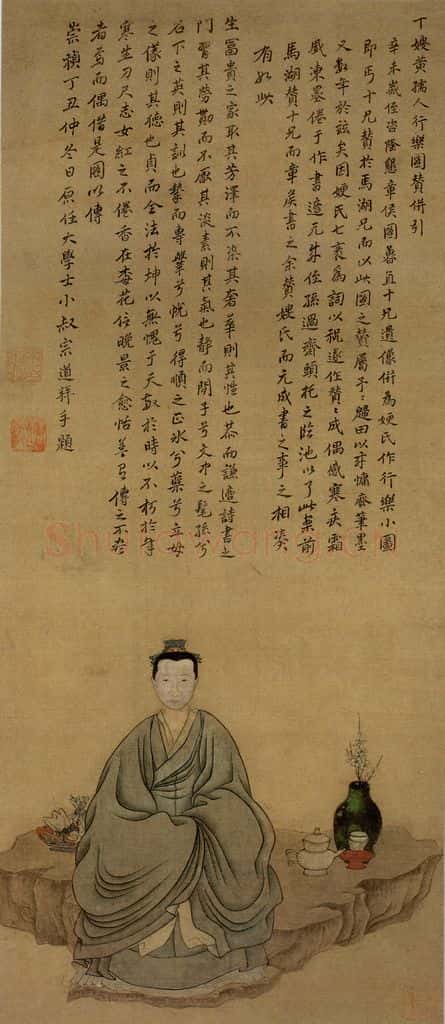 丁嫂黄孺人行樂圖贊併引
辛未歲侄咨隆懇章侯圖暮亘十兄遺像併為嫂氏作行樂小圖
即丐十兄贊於馬湖兄而以此圖之贊屬予田以來慵吝筆墨
又數年於茲矣因嫂氏七袠為詞以祝遂作贊成偶感寒疾霜
威凍墨倦于作書適元成侄孫過齋頭托之臨池以了此案前
馬湖贊十兄而章侯書之余贊嫂氏而元成書之事之相湊
有如此
生富貴之家取其芳澤而不染其奢華則其性也恭而謙適詩書之
門習其勞勩而不厭其淡素則其氣也靜而閒子兮文中之髦孫兮
石下之英則其訓也摯而專煢兮恍兮得順之正冰兮蘗兮立母
之儀則其德也貞而全法於坤以無愧于天敬於時以不朽於年
寒生刀尺志女紅之不倦香在梅花任晚景之愈恬善有傳之不盡
者焉而偶借是圖以傳
崇禎丁丑仲冬日原任大學士小叔宗道拜手題